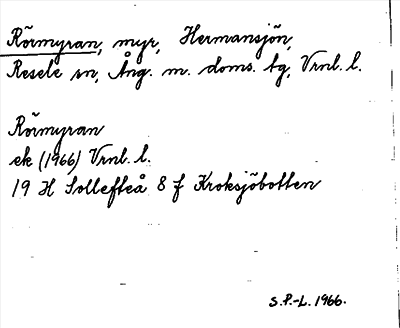 Rörmyran, myr, Hermansjön,
Resele sn, Ång. m. doms. tg, Vrnl. l.
Rörmyran
ek (1966) Vrnl. l.
19 H Sollefteå 8 f Kroksjöbotten
S.P.-L. 1966.